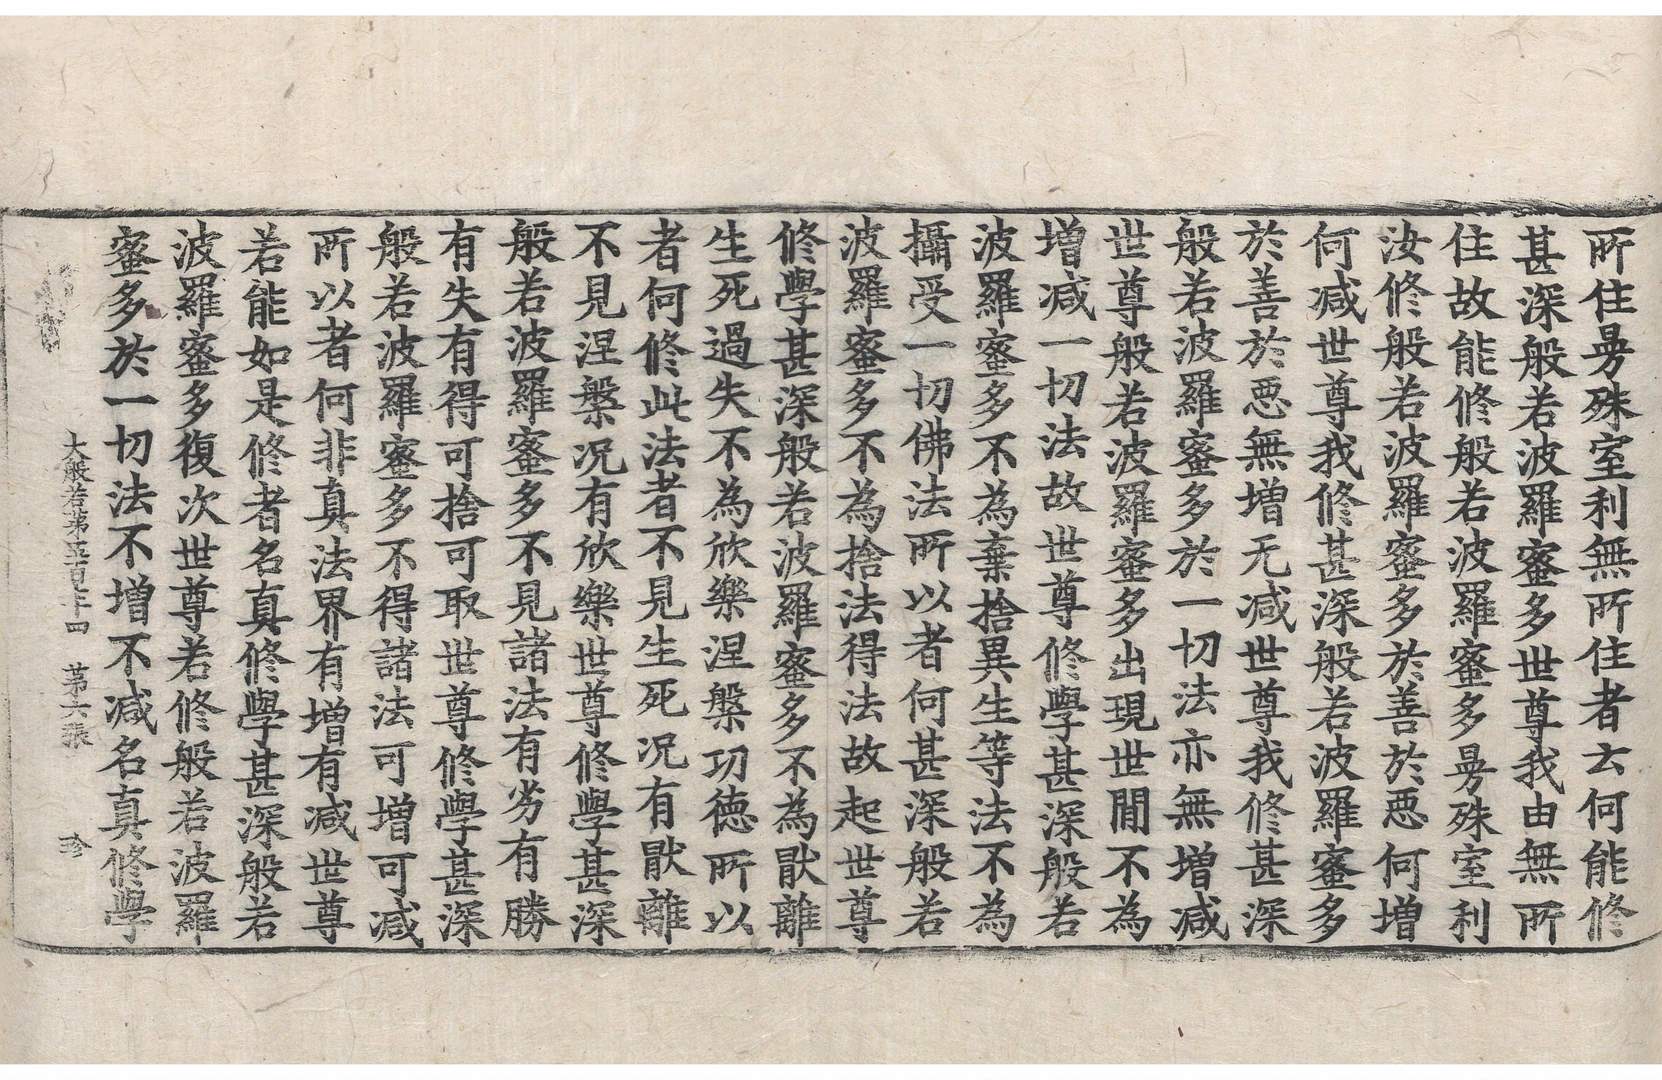 所住曼殊室利無所住者云何能修
甚深般若波羅蜜多世尊我由無所
住故能修般若波羅蜜多曼殊室利
汝修般若波羅蜜多於善於惡何增
何減世尊我修甚深般若波羅蜜多
於善於惡無增无減世尊我修甚深
般若波羅蜜多於一切法亦無增減
世尊般若波羅蜜多出現世間不為
增減一切法故世尊修學甚深般若
波羅蜜多不為棄捨異生等法不為
攝受一切佛法所以者何甚深般若
波羅蜜多不為捨法得法故起世尊
修學甚深般若波羅蜜多不為猒離
生死過失不為欣樂涅槃功德所以
者何修此法者不見生死況有猒離
不見涅槃況有欣樂世尊修學甚深
般若波羅蜜多不見諸法有劣有勝
有失有得可捨可取世尊修學甚深
般若波羅蜜多不得諸法可增可減
所以者何非真法界有增有減世尊
若能如是修者名真修學甚深般若
波羅蜜多復次世尊若修般若波羅
蜜多於一切法不增不減名真修學
大般若第五百七十四 第六張 珍